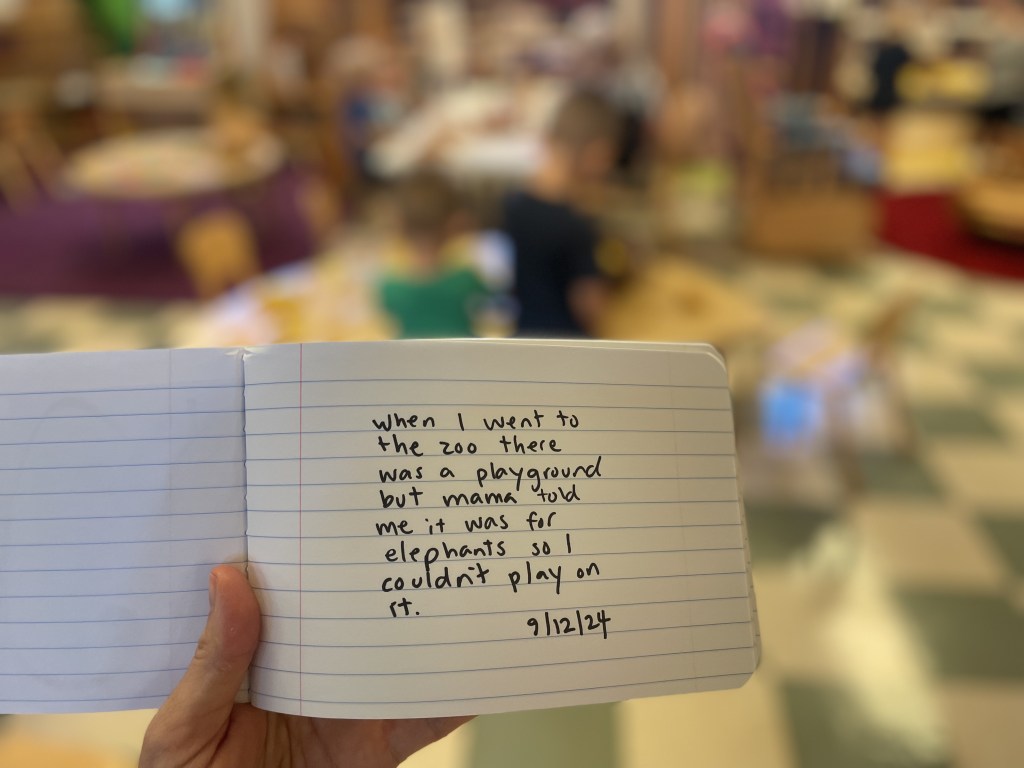 when I went to
the zoo there
was a playground
but mama told
me it was for
elephants so I
couldn't play on
it.
9/12/24